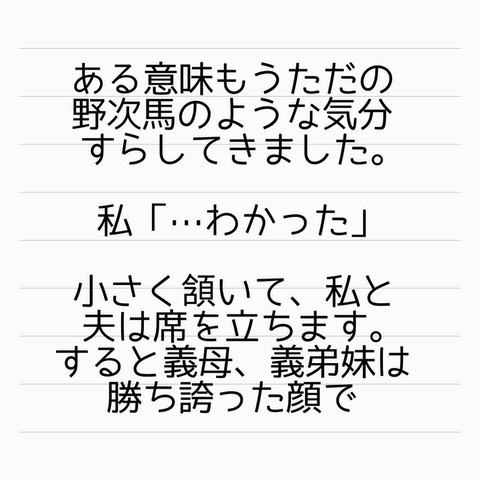 ある意味もうただの
野次馬のような気分
すらしてきました。
私「…わかった」
小さく頷いて、私と
夫は席を立ちます。
すると義母、義弟妹は
勝ち誇った顔で